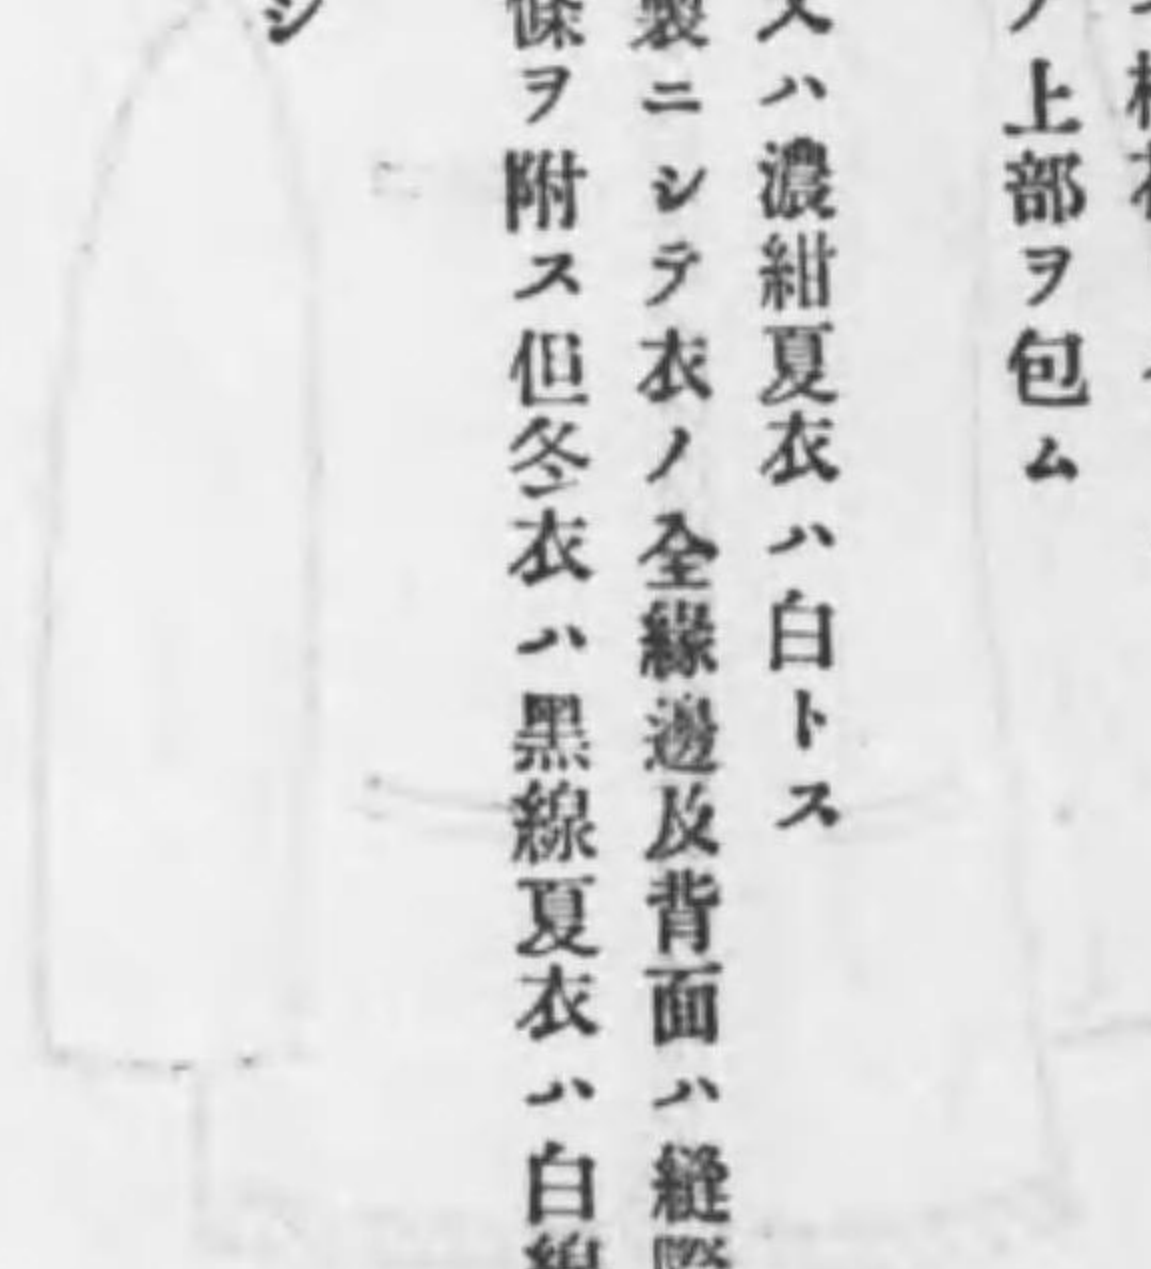 ノ上部ヲ包ム
又ハ濃紺夏衣ハ白トス
製ニシテ衣ノ全緣邊及背面ハ縫際
條ヲ附ス但冬衣ハ黑線夏衣ハ白線
シ